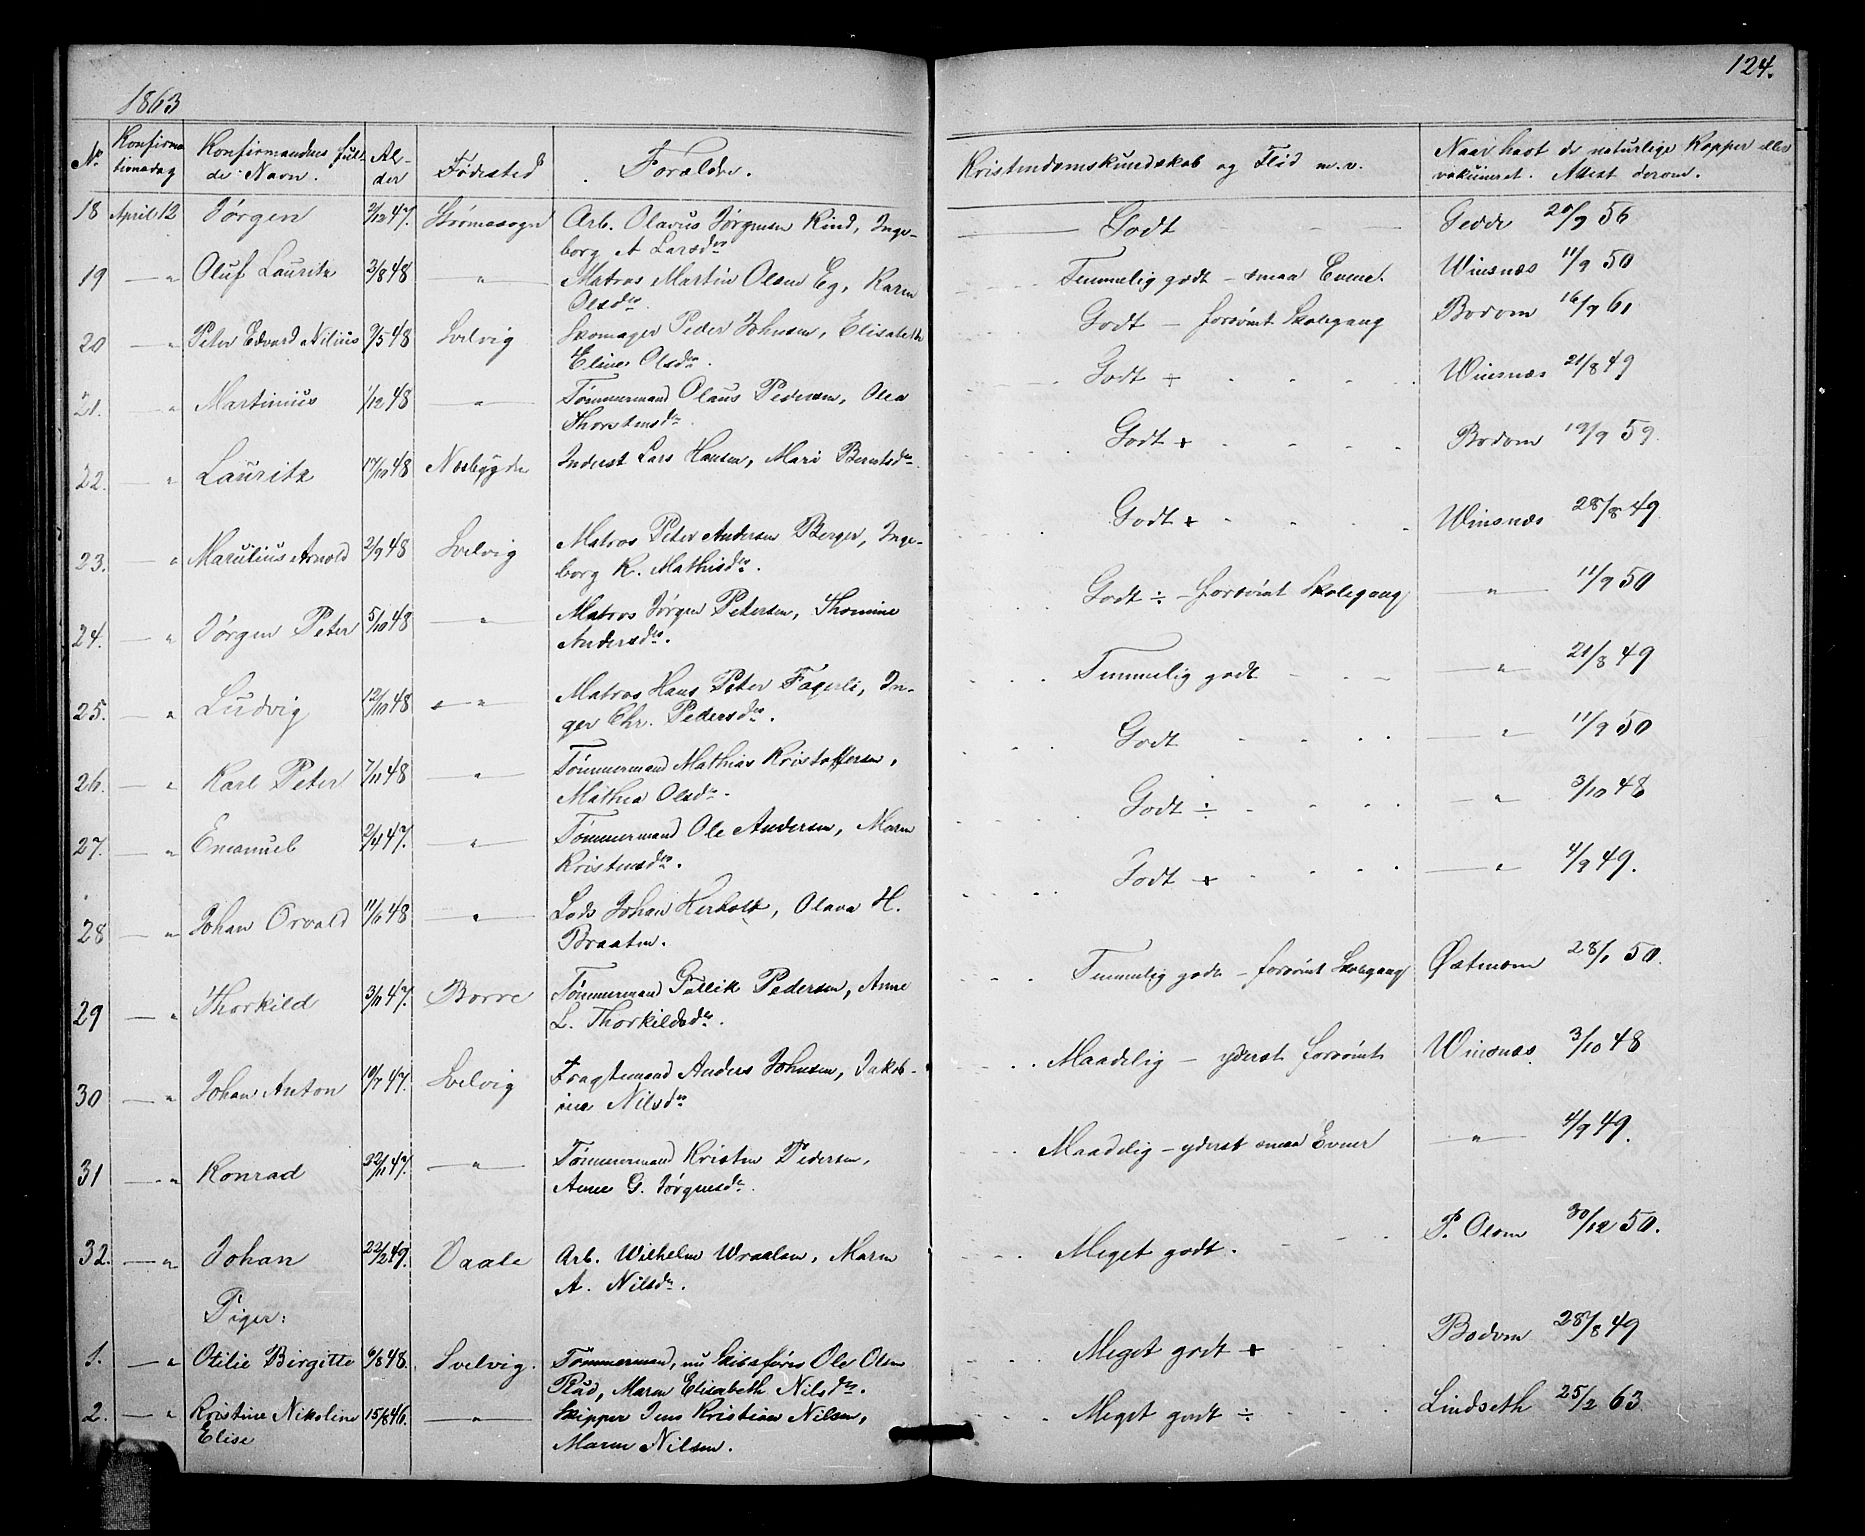 1863
124.
No Konfirma- Konfirmandens ful- Al- Fødested Forældre. Kristendomskundskab og Flid m.v. Naar havt de naturlige Kopper eller
tionsdag de Navn. der vakcineret. Attest derom.
18 April 12 Jørgen 2/12 47. Strømssogn Arb. Olavus Jørgensen Rind, Inge- Godt Gedde 20/9 56
borg A Larsdr
19 — " Oluf Lauritz 3/8 48 — " — Matros Martin Olsen Eg, Karen Temmelig godt – smaa Evner. Winsnæs 11/9 50
Olsdr.
20 — " Peter Edvard Nilius 9/5 48 Svelvig Skomager Peder Johnsen, Elisabeth Godt – forsømt Skolegang Bodom 16/9 61
Eline Olsdr.
21. — " Martinius 1/12 48 — " — Tømmermand Olaus Pedersen, Olea Godt ÷ Winsnæs 21/8 49
Thorstensdr.
22. — " Lauritz 17/10 48 Nesbygden Inderst Lars Hansen, Mari Berntsdr. Godt + Bodom 19/9 59.
23. — " Marulius Arnold 2/9 48 Svelvig Matros Peter Andersen Berger, Inge- Godt + Winsnæs 28/8 49
borg K. Mathisdr.
24. — " Jørgen Peter 5/10 48 — " — Matros Jørgen Petersen, Thomine Godt ÷ – forsømt Skolegang — " — 11/9 50
Andersdr.
25. — " Ludvig 12/10 48 — " — Matros Hans Peter Fagerli, In- Temmelig godt — " — 21/8 49
ger Chr. Pedersdr.
26. — " Karl Peter 7/11 48 — " — Tømmermand Mathias Kristoffersen, Godt — " — 11/9 50
Mathea Olsdr.
27. — " Emanuel 2/4 47. — " — Tømmermand Ole Andersen, Maren Godt ÷ — " — 3/10 48
Kristensdr.
28 — " Johan Orvald 11/6 48 — " — Lods Johan Herholt, Olava H. Godt + — " — 4/9 49.
Braaten.
29 — " Thorkild 3/11 47. Borre Tømmermand Gullik Pedersen, Anne Temmelig godt – forsømt Skolegang Østmom 28/1 50.
L. Thorkildsdr.
30 — " Johan Anton 10/7 47. Svelvig Fragtemand Anders Johnsen, Jakob- Maadelig – yderst forsømt Winsnæs 3/10 48
ine Nilsdr
31 — " Konrad 22/11 47. — " — Tømmermand Kristen Pedersen, Maadelig – yderst smaa Evner — " — 4/9 49.
Anne G. Jørgensdr.
32. — " Johan 22/2 49. Vaale Arb. Wilhelm Wraalsen, Maren Meget godt. P. Olsen 30/12 50.
A. Nilsdr.
Piger:
1. — " Otilie Birgitte 6/8 48. Svelvig. Tømmermand, nu Skibsfører Ole Olsen Meget godt + Bodom 28/8 49
Rud, Maren Elisabeth Nilsdr.
2. — " Kristine Nikoline 15/8 46. — " — Skipper Jens Kristian Nilsen, Meget godt ÷ Lindseth 25/2 63
Elise Maren Nilsen.